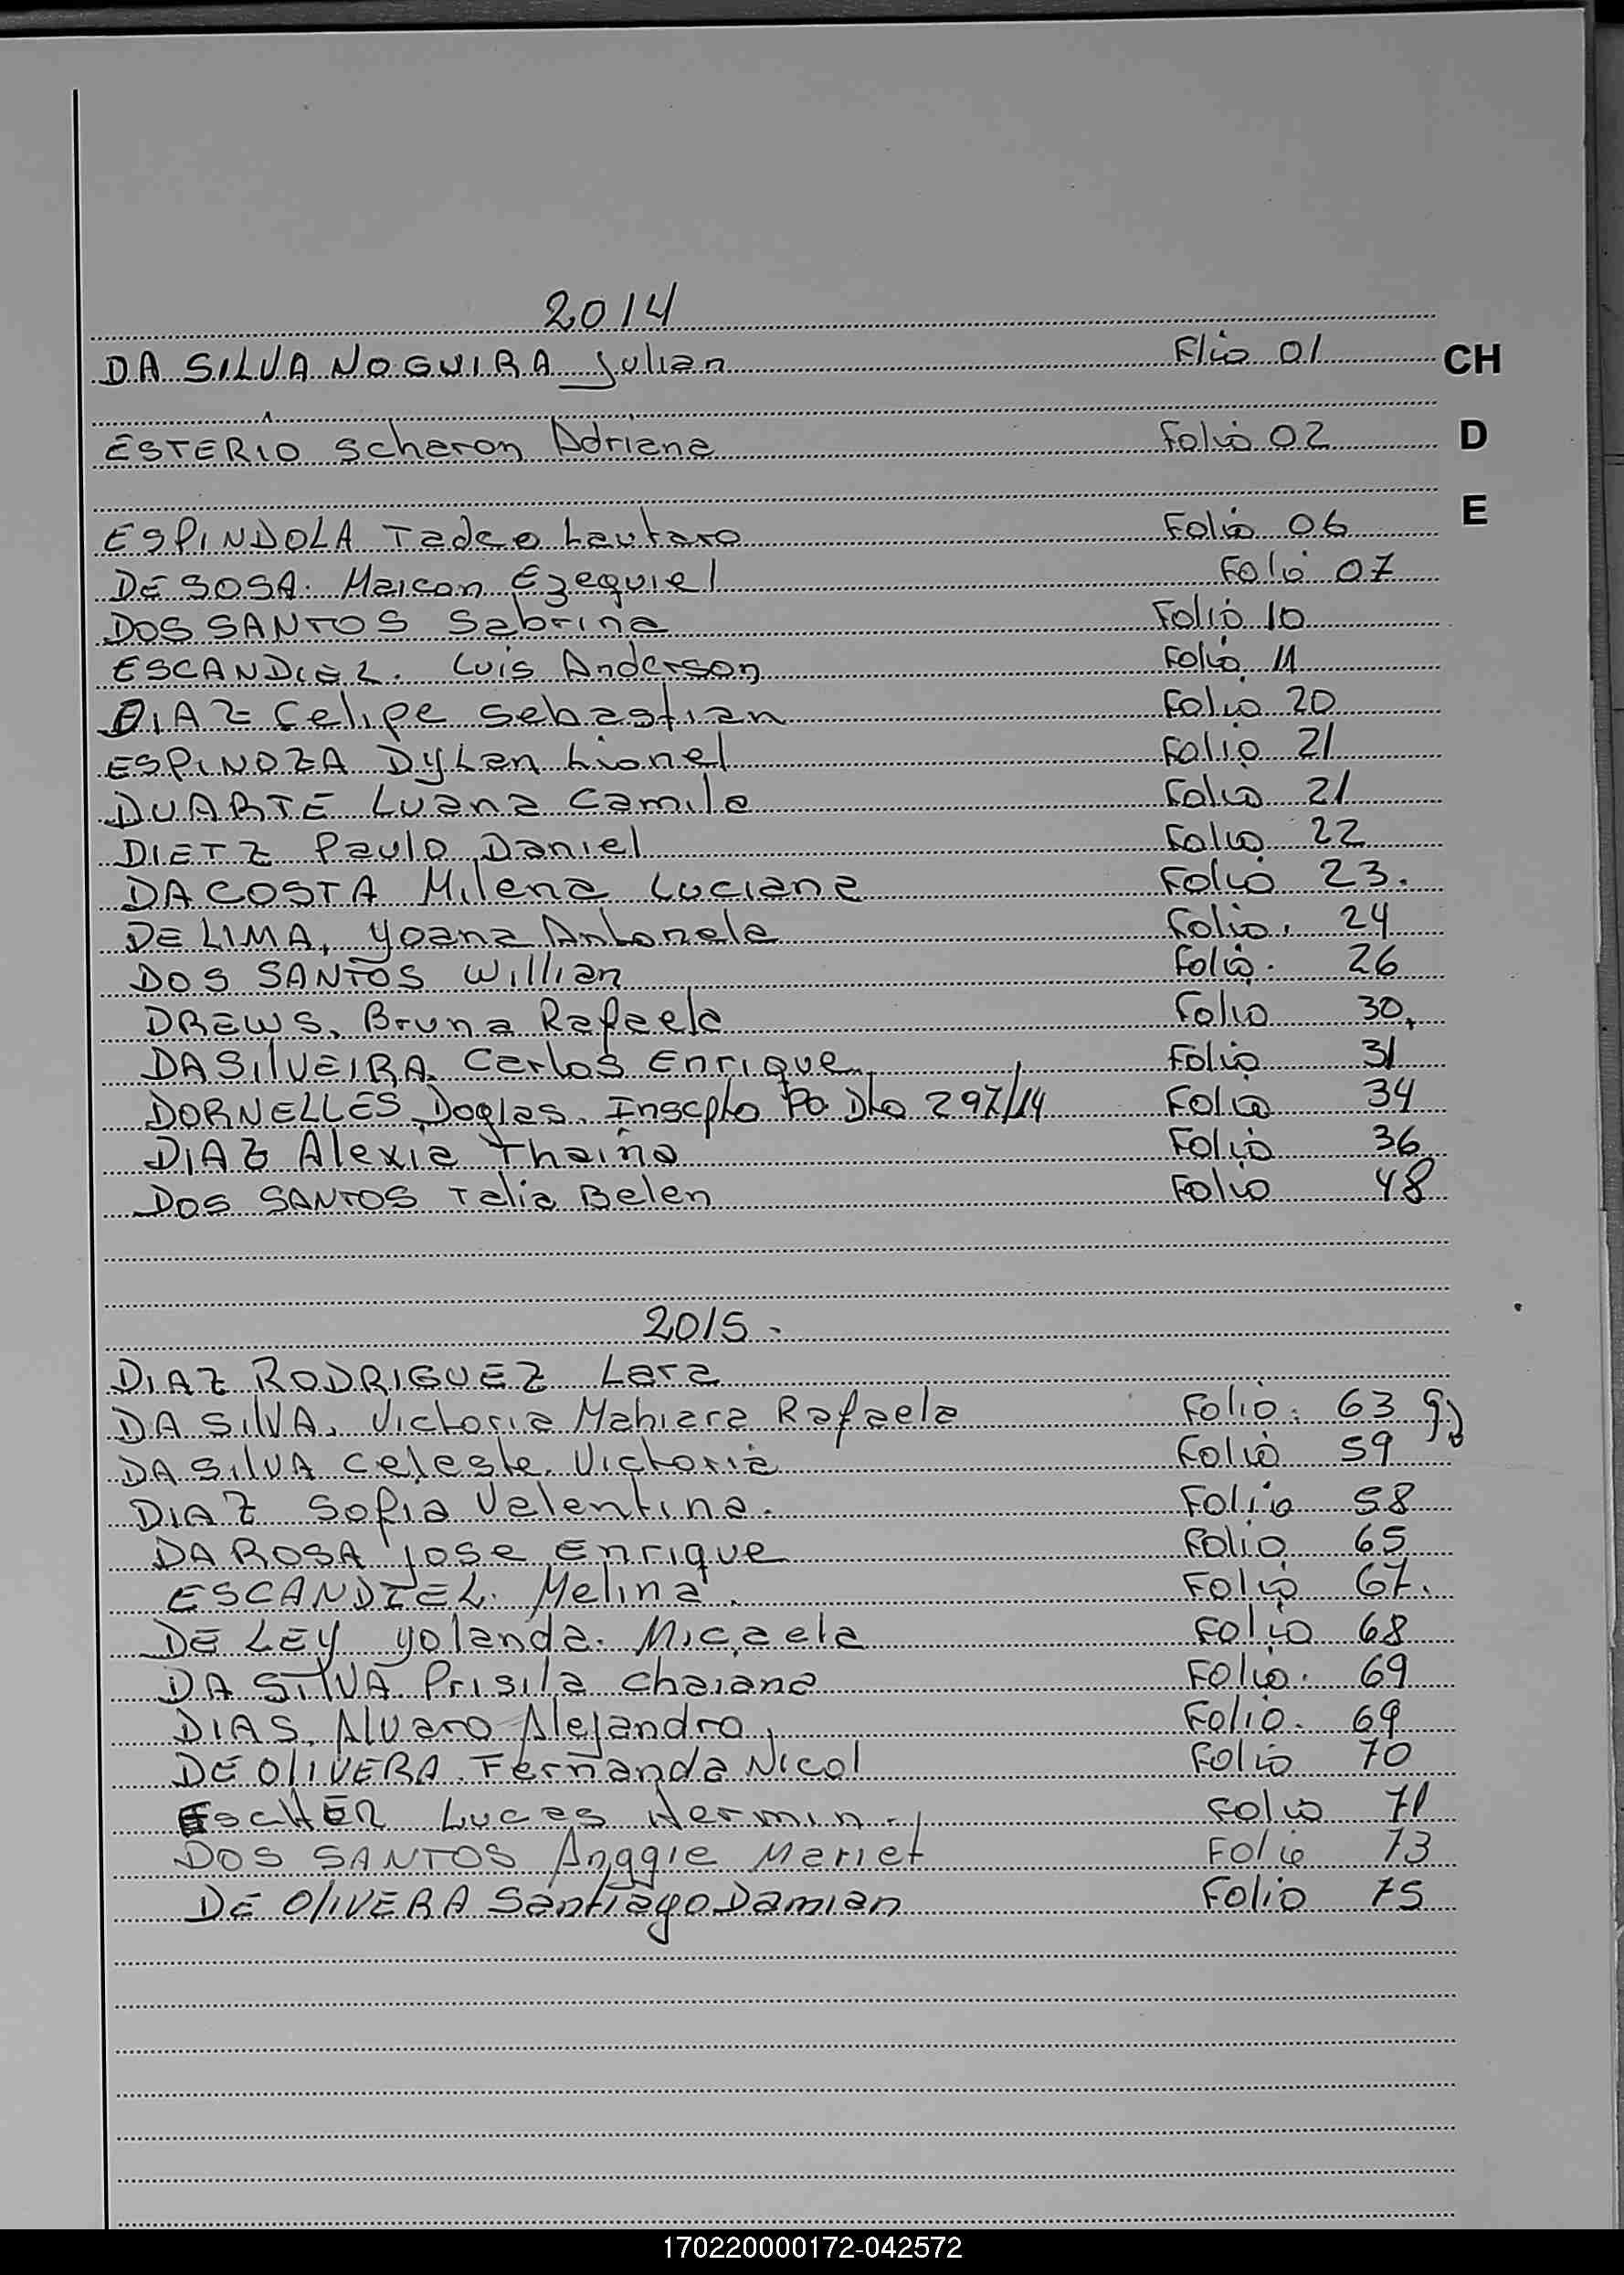 2014
DA SILVA NOGUIRA Julian Flio 01 CH
ESTERIO Scharon Adriana Folio 02 D
E
ESPINDOLA Tadeo Lautaro Folio 06
DE SOSA. Maicon Ezequiel Folio 07
DOS SANTOS Sabrina Folio 10
ESCANDIEL. Luis Anderson Folio 11
DIAZ Felipe Sebastian Folio 20
ESPINOZA Dylan Lionel Folio 21
DUARTE Luana Camila Folio 21
DIETZ Paulo Daniel Folio 22
DA COSTA Milena Luciana Folio 23.
DE LIMA, Yoana Antonela Folio. 24
DOS SANTOS Willian Folio. 26
DREWS, Bruna Rafaela Folio 30,
DA SilVEIRA. Carlos Enrique. Folio 31
DORNELLES Doglas. Inscpto Po Dto 297/14 Folio 34
DIAZ Alexia Thaina Folio 36
DOS SANTOS Talia Belen Folio 48
2015.
DIAZ RODRIGUEZ Lara
DA SilVA, Victoria Mahiara Rafaela Folio. 63
DA SilVA Celeste. Victoria Folio 59
DIAZ Sofia Valentina. Folio 58
DA ROSA Jose Enrique Folio 65
ESCANDIEL. Melina. Folio 67.
DE LEY Yolanda. Micaela Folio 68
DA SilVA Prisila Chaiana Folio. 69
DIAS, Alvaro Alejandro, Folio. 69
DE OlIVERA Fernanda Nicol Folio 70
EscHER Lucas Hermin. Folio 71
DOS SANTOS Anggie Mariet Folio 73
DE OlIVERA Santiago Damian Folio 75
170220000172-042572